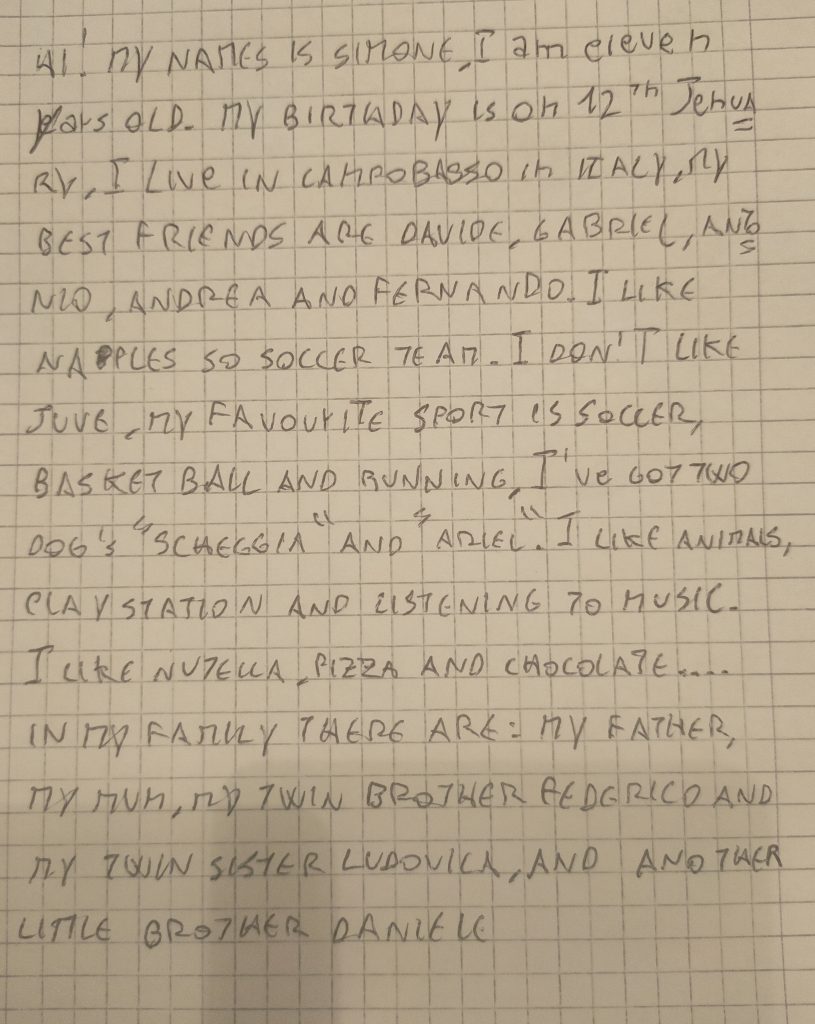 HI! MY NAMES IS SIMONE, I am eleven
years OLD. MY BIRTHDAY is on 12TH JenUA
RY, I Live IN CAMPOBASSO in ITALY, MY
BEST FRIENDS ARE DAVIDE, GABRIEL, ANTO
NIO, ANDREA AND FERNANDO. I LIKE
NAPPLES SO SOCCER TEAM. I DON'T LIKE
JUVE, MY FAVOURITE SPORT IS SOCCER,
BASKET BALL AND RUNNING, I've GOT TWO
DOG'S "SCHEGGIA" AND "ARIEL". I LIKE ANIMALS,
PLAY STATION AND LISTENING TO MUSIC.
I LIKE NUTELLA, PIZZA AND CHOCOLATE....
IN MY FAMILY THERE ARE: MY FATHER,
MY MUM, MY TWIN BROTHER FEDERICO AND
MY TWIN SISTER LUDOVICA, AND ANOTHER
LITTLE BROTHER DANIELE